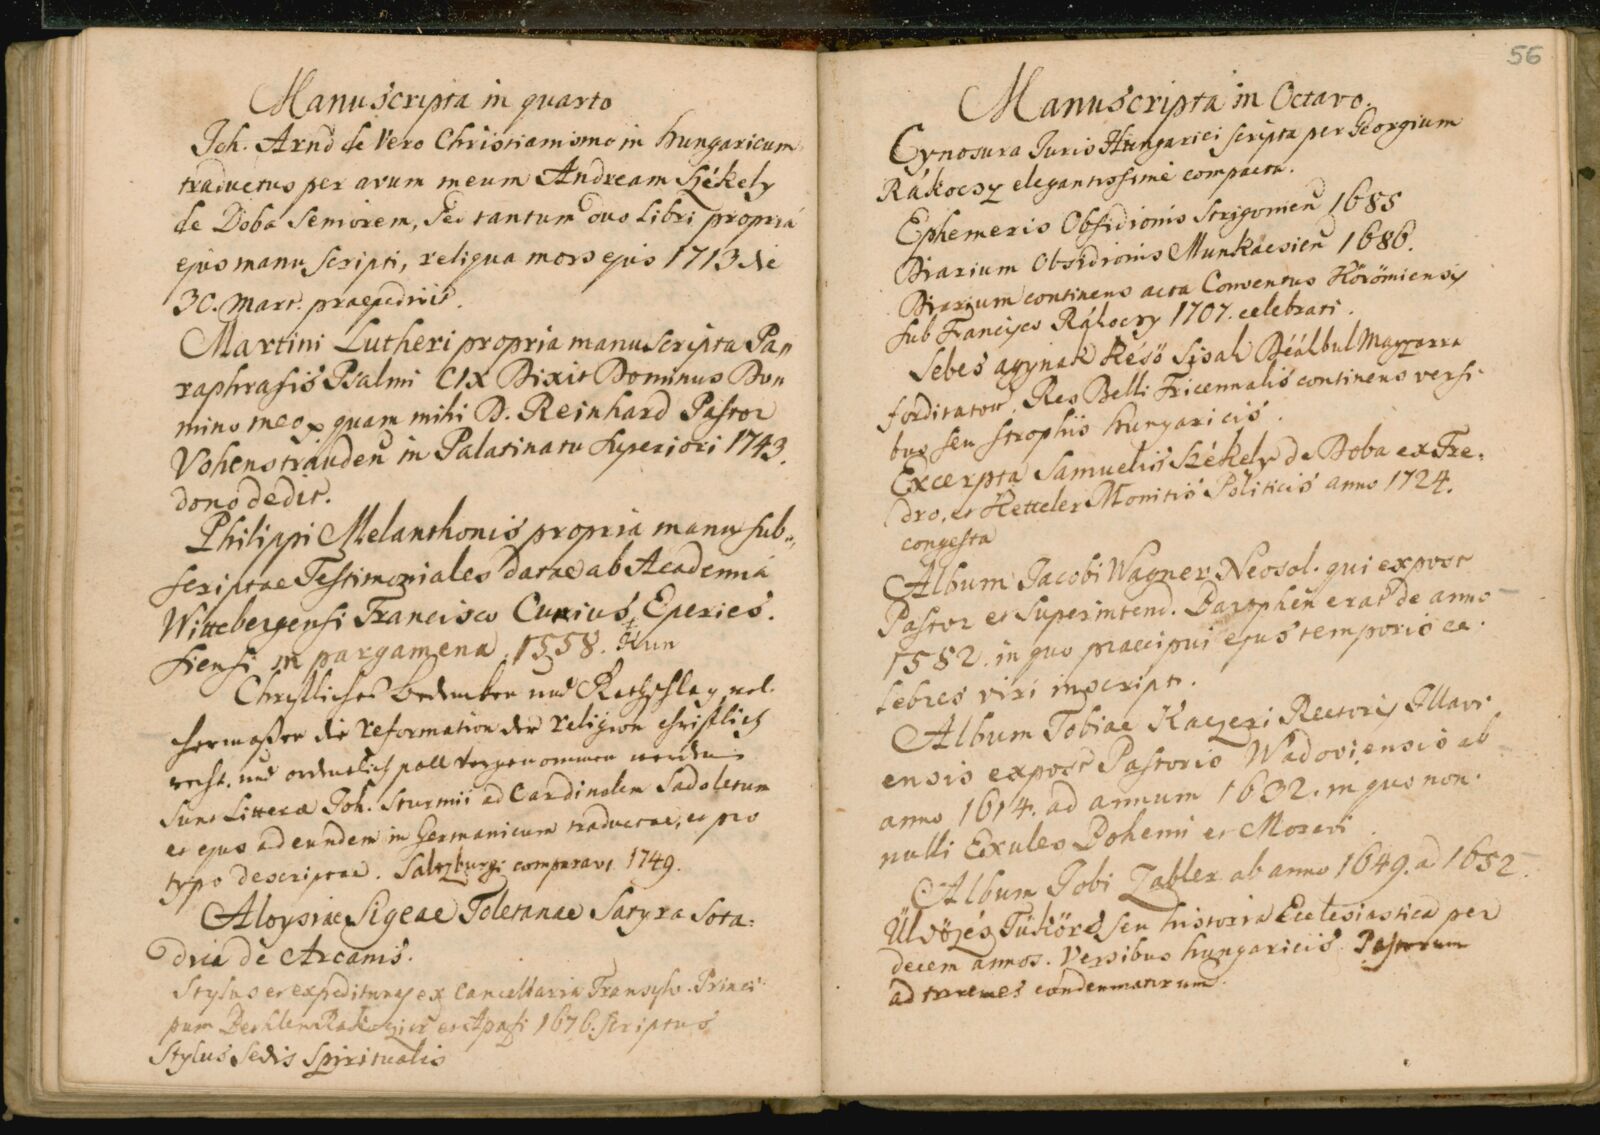 Manuscripta in quarto
Joh. Arnd de Vero Christianismo in hungaricum
traductus per avum meum Andream Székely
de Doba Seniorem, sed tantum duo Libri propria
ejus manu scripti, reliqua mors ejus 1713 de
30. Mart. praepediit.
Martini Lutheri propria manu scripta Pa
raphrasis Psalmi CIX Dixit Dominus Do
mino meo quam mihi D. Reinhard Pastor
Vohenstraüden in Palatinatu Superiori 1743.
dono dedit.
Philippi Melanthonis propria manu sub
scriptae Testimoniales datae ab Academia
Wittebergensi Francisco Cunius Eperies.
siensi in pargamena 1558. Hun
Christliches bedencken und Rathschlag wel
chermassen die reformation der religion christlich
recht. und ordentlich soll vorgenommen werden
sunt Litterae Joh. Sturmii ad Cardinalem Sadoletum
et ejus ad eundem in Germanicum traductae, et pro
typo descriptae. Saltzburgi comparavi 1749.
Aloysiae Sigeae Toletanae Satyra Sota:
dria de Arcanis.
Stylus et expediturae ex Cancellaria Transylv. Princi
pum Bethlen Rakoczii et Apafi 1676. scriptus
Stylus Sedis Spiritualis
56
Manuscripta in Octavo.
Cynosura Juris Hungarici scripta per Georgium
Rákoczy elegantissime compacta.
Ephemeris Obsidionis Strigonien 1685
Diarium Obsidionis Munkacsien 1686.
Diarium continens acta Conventus Körömiensis
sub Francisco Rákoczy 1707. celebrati.
Sebes agynak Késö Sisak Déálbul Magyarra
fordítatott. Res Belli Tricennalis continens versi-
bus seu strophis hungaricis.
Excerpta Samuelis Székely de Doba ex Fre.
dro, et Ketteler Monitis Politicis anno 1724.
congesta
Album Jacobi Wagner Neosol. qui expost
Pastor et Superintend. Bartphen erat de anno
1582. in quo praecipui ejus temporis ce.
lebres viri inscripti.
Album Tobiae Kaezeri Rectoris Illavi
ensis expost Pastoris Wadoviensis ab
anno 1614. ad annum 1632. in quo non-
nulli Exules Bohemi et Moravi.
Album Jobi Zabler ab anno 1649. ad 1652.
Üldözés Tüköre seu historia Ecclesiastica per
decem annos. Versibus hungaricis Pastorum
ad triremes condemnatorum.